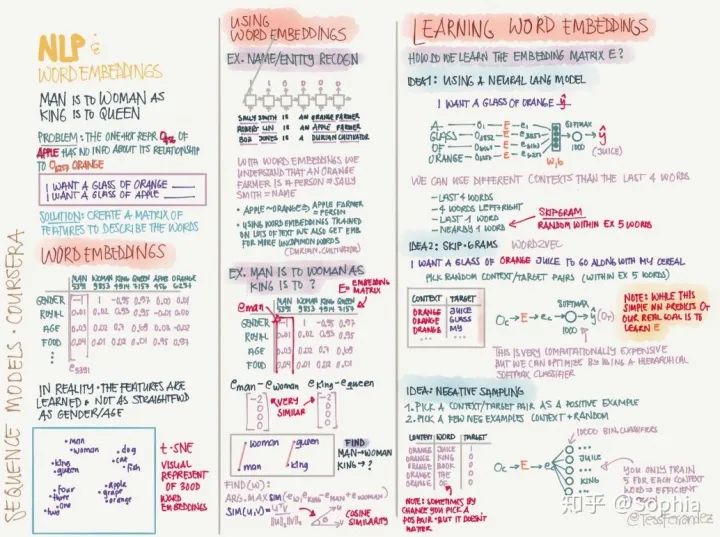 SEQUENCE MODELS · COURSERA
NLP &
WORD EMBEDDINGS
MAN IS TO WOMAN AS
KING IS TO QUEEN
PROBLEM: THE ONE-HOT REPR. OF
APPLE HAS NO INFO ABOUT ITS RELATIONSHIP
TO ORANGE
I WANT A GLASS OF ORANGE ____
I WANT A GLASS OF APPLE ____
SOLUTION: CREATE A MATRIX OF
FEATURES TO DESCRIBE THE WORDS
WORD EMBEDDINGS
MAN WOMAN KING QUEEN APPLE ORANGE
5391 9853 4914 7157 456 6257
GENDER -1 1 -0.95 0.97 0.00 0.01
ROYAL 0.01 0.02 0.93 0.95 -0.01 0.00
AGE 0.03 0.02 0.7 0.69 0.03 -0.02
FOOD 0.04 0.01 0.02 0.01 0.95 0.97
e5391
IN REALITY · THE FEATURES ARE
LEARNED & NOT AS STRAIGHTFWD
AS GENDER/AGE
man
woman
dog
cat
fish
king
queen
four
three
one
two
apple
grape
orange
t-SNE
VISUAL
REPRESENT
OF 300D
WORD
EMBEDDINGS
USING
WORD EMBEDDINGS
EX. NAME/ENTITY RECOGN
1 1 0 0 0 0
SALLY SMITH IS AN ORANGE FARMER
ROBERT LIN IS AN APPLE FARMER
BOB JONES IS A DURIAN CULTIVATOR
WITH WORD EMBEDDINGS WE
UNDERSTAND THAT AN ORANGE
FARMER IS A PERSON ⇒ SALLY
SMITH = NAME
· APPLE ~ ORANGE ⇒ APPLE FARMER
= PERSON
· USING WORD EMBEDDINGS TRAINED
ON LOTS OF TEXT WE ALSO GET EMB
FOR MORE UNCOMMON WORDS
(DURIAN, CULTIVATOR)
EX. MAN IS TO WOMAN AS
KING IS TO ?
E = EMBEDDING
MATRIX
eman
MAN WOMAN KING QUEEN
5391 9853 4914 7157
GENDER -1 1 -0.95 0.97
ROYAL 0.01 0.02 0.93 0.95
AGE 0.03 0.02 0.7 0.69
FOOD 0.04 0.01 0.02 0.01
eman - ewoman eking - equeen
[-2 0 0 0] VERY SIMILAR [-2 0 0 0]
woman queen
man king
FIND
MAN → WOMAN
KING → ?
FIND(W):
ARG.MAX SIM(ew, eking - eman + ewoman)
SIM(u,v) = uᵀv / ‖u‖₂‖v‖₂
COSINE
SIMILARITY
LEARNING WORD EMBEDDINGS
HOW DO WE LEARN THE EMBEDDING MATRIX E?
IDEA1: USING A NEURAL LANG MODEL
I WANT A GLASS OF ORANGE ŷ
A O1 → E → e1
GLASS O3852 → E → e3852
OF O6163 → E → e6163
ORANGE O6257 → E → e6257
W, b
SOFTMAX
1000
ŷ
(JUICE)
WE CAN USE DIFFERENT CONTEXTS THAN THE LAST 4 WORDS
- LAST 4 WORDS
- 4 WORDS LEFT/RIGHT
- LAST 1 WORD
- NEARBY 1 WORD
SKIPGRAM
RANDOM WITHIN EX 5 WORDS
IDEA2: SKIP-GRAMS WORD2VEC
I WANT A GLASS OF ORANGE JUICE TO GO ALONG WITH MY CEREAL
PICK RANDOM CONTEXT/TARGET PAIRS (WITHIN EX 5 WORDS)
CONTEXT TARGET
ORANGE JUICE
ORANGE GLASS
ORANGE MY
Oc → E → ec
SOFTMAX
1000
ŷ (Ot)
NOTE: WHILE THIS
SIMPLE NN PREDICTS Ot
OUR REAL GOAL IS TO
LEARN E
THIS IS VERY COMPUTATIONALLY EXPENSIVE
BUT WE CAN OPTIMIZE BY USING A HIERARCHICAL
SOFTMAX CLASSIFIER
IDEA: NEGATIVE SAMPLING
1. PICK A CONTEXT/TARGET PAIR AS A POSITIVE EXAMPLE
2. PICK A FEW NEG EXAMPLES CONTEXT + RANDOM
CONTEXT WORD TARGET
ORANGE JUICE 1
ORANGE KING 0
ORANGE BOOK 0
ORANGE THE 0
ORANGE OF 0
NOTE: SOMETIMES BY
CHANCE YOU PICK A
POS PAIR · BUT IT DOESN'T
MATTER
10000 BIN. CLASSIFIERS
Oc → E → e
JUICE
KING
YOU ONLY TRAIN
5 FOR EACH CONTEXT
WORD ⇒ EFFICIENT
知乎 @Sophia
@TessFerrandez